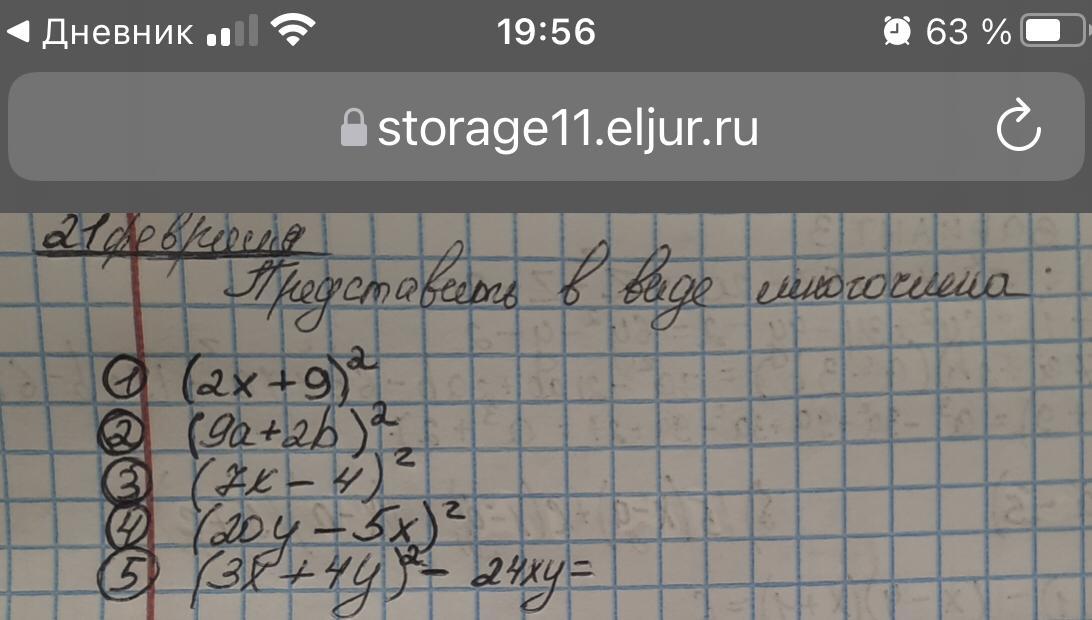 Дневник 19:56 63 %
storage11.eljur.ru
21 февраля
Представить в виде многочлена
① (2x + 9)²
② (9a + 2b)²
③ (7x - 4)²
④ (20y - 5x)²
⑤ (3x + 4y)² - 24xy =